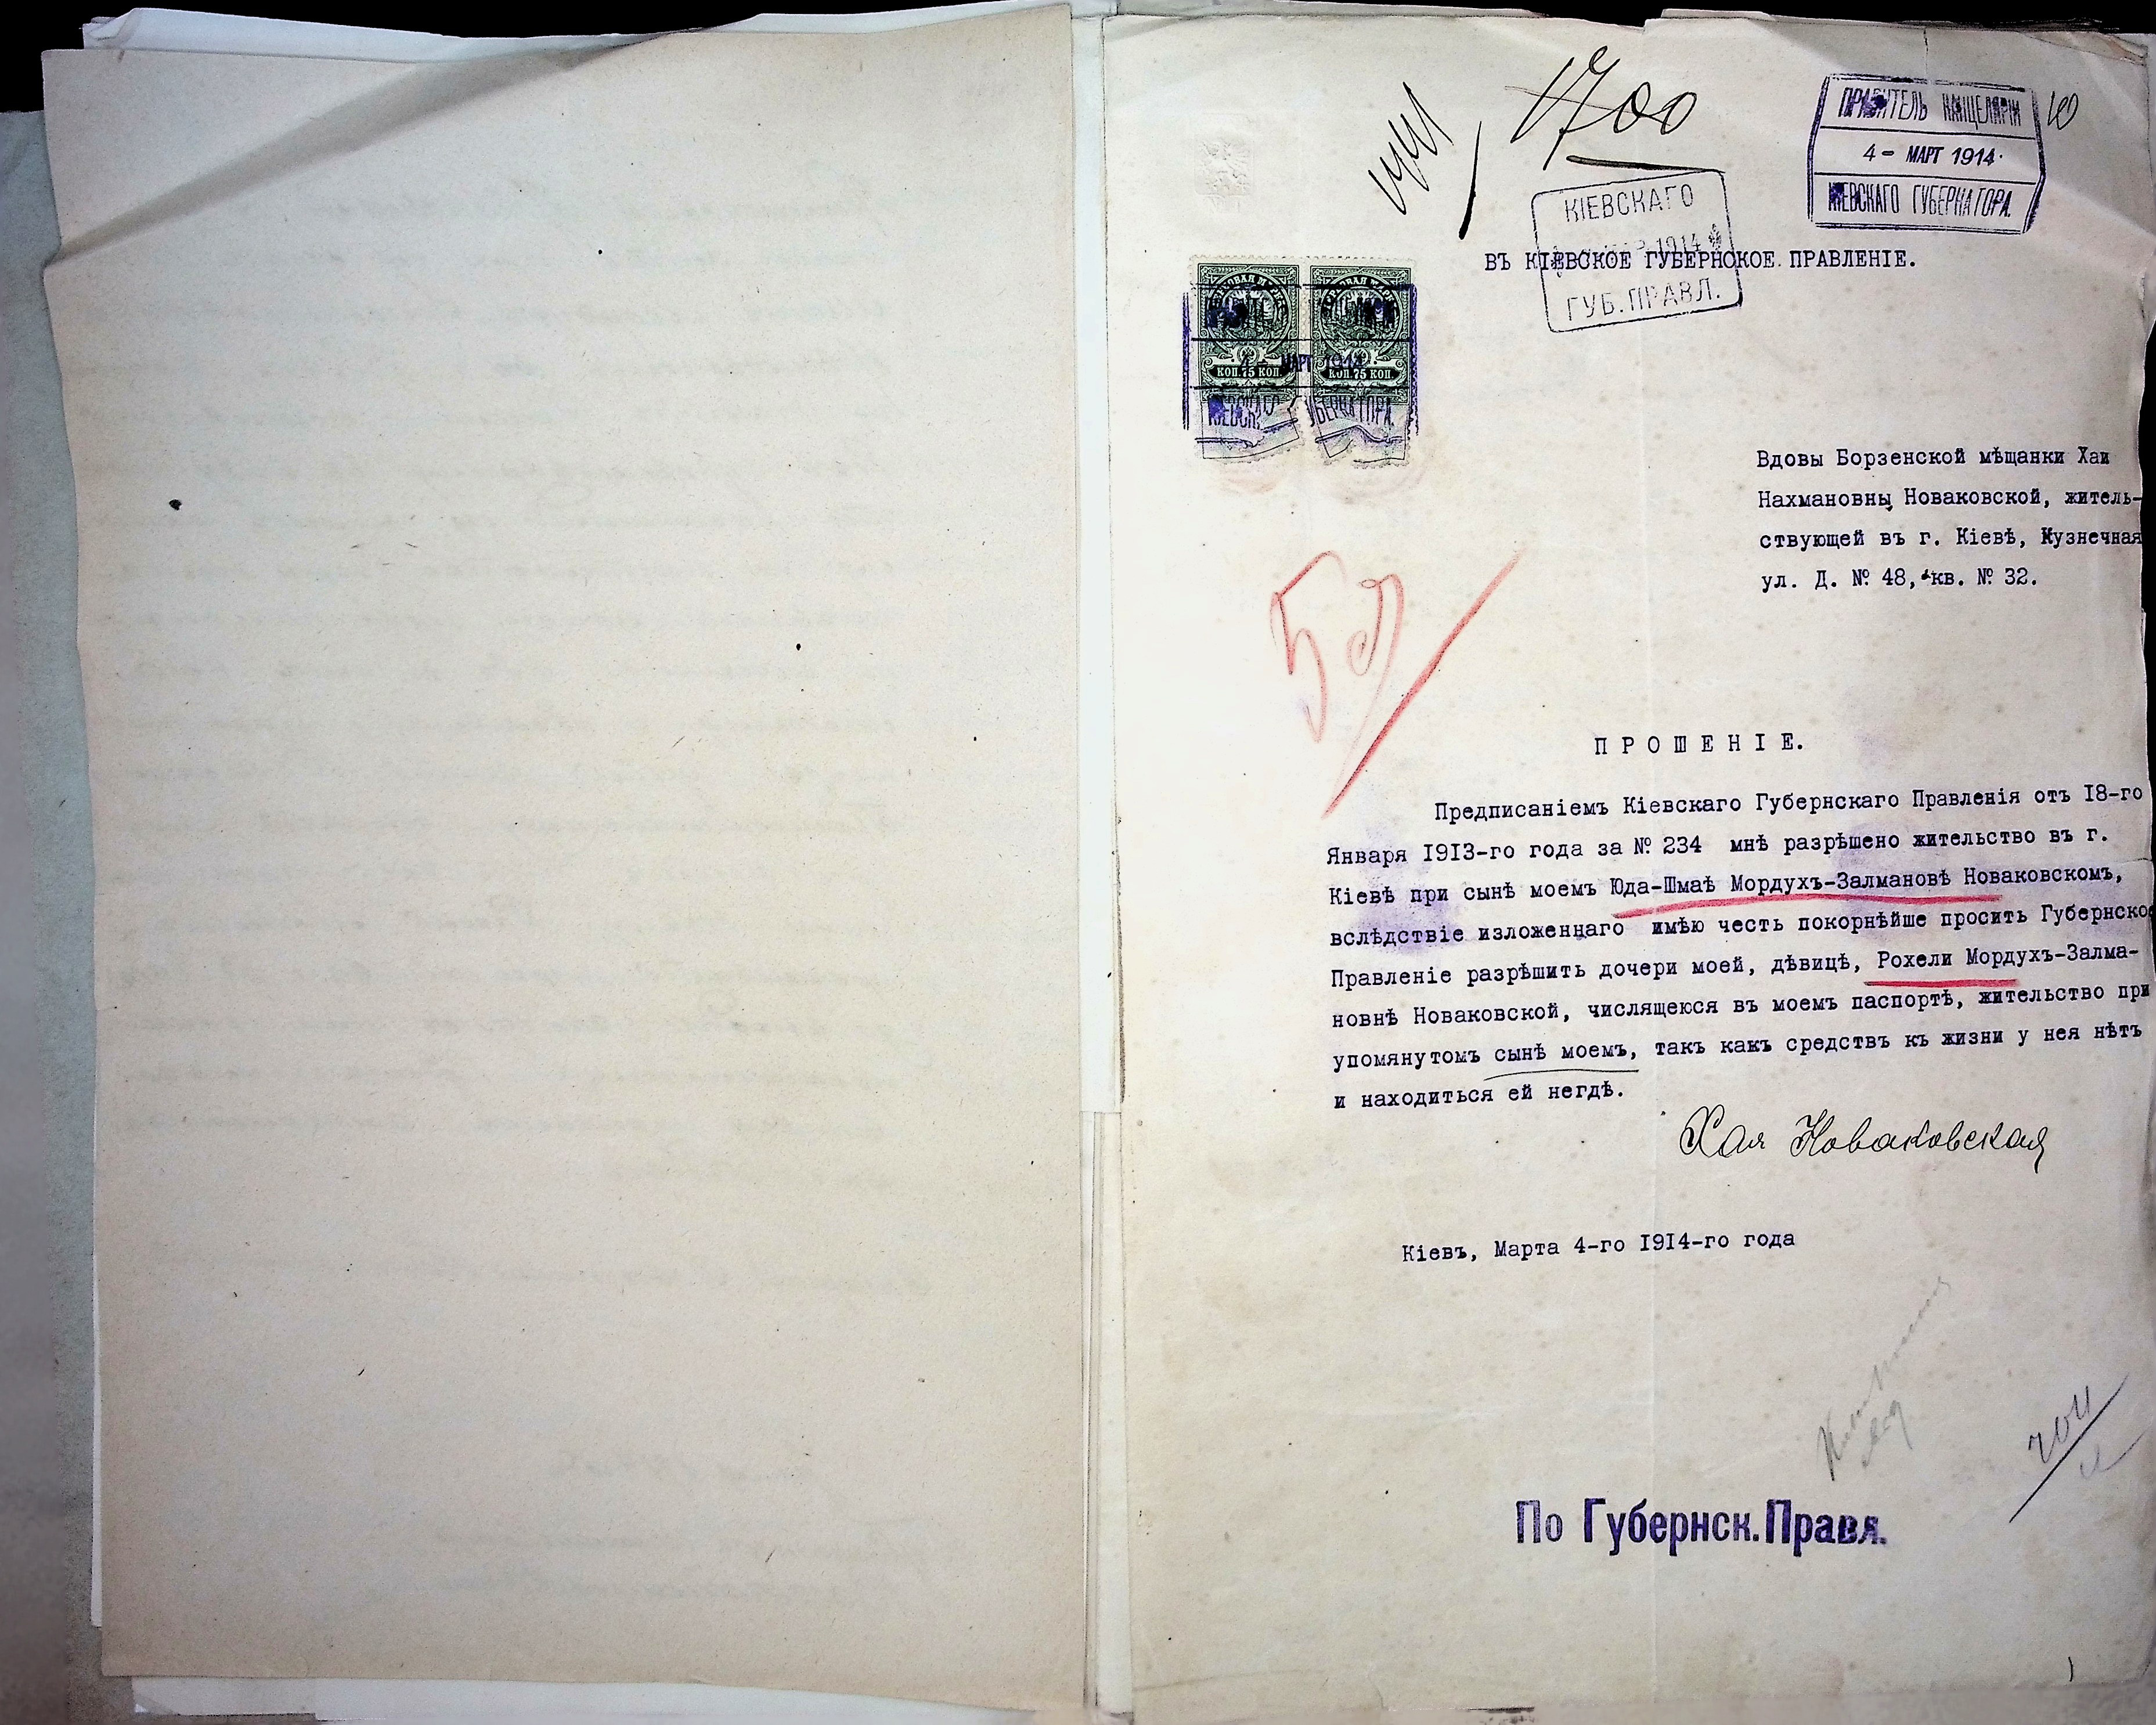 1700
ПРАВИТЕЛЬ КАНЦЕЛЯРІИ
4- МАРТ 1914.
КІЕВСКАГО ГУБЕРНАТОРА.
КІЕВСКАГО
1914
ГУБ.ПРАВЛ.
ВЪ КІЕВСКОЕ ГУБЕРНСКОЕ ПРАВЛЕНІЕ.
МАРТ 1914
КОП.75 КОП. КОП.75 КОП.
КІЕВСК. ГУБЕРНАТОРА.
Вдовы Борзенской мѣщанки Хаи
Нахмановны Новаковской, житель-
ствующей въ г. Кіевѣ, Кузнечная
ул. Д. № 48, кв. № 32.
ПРОШЕНІЕ.
Предписаніемъ Кіевскаго Губернскаго Правленія отъ 18-го
Января 1913-го года за № 234 мнѣ разрѣшено жительство въ г.
Кіевѣ при сынѣ моемъ Юда-Шмаѣ Мордухъ-Залмановѣ Новаковскомъ,
вслѣдствіе изложеннаго имѣю честь покорнѣйше просить Губернское
Правленіе разрѣшить дочери моей, дѣвицѣ, Рохели Мордухъ-Залма-
новнѣ Новаковской, числящеюся въ моемъ паспортѣ, жительство при
упомянутомъ сынѣ моемъ, такъ какъ средствъ къ жизни у нея нѣтъ
и находиться ей негдѣ.
Хая Новаковская
Кіевъ, Марта 4-го 1914-го года
По Губернск.Правл.